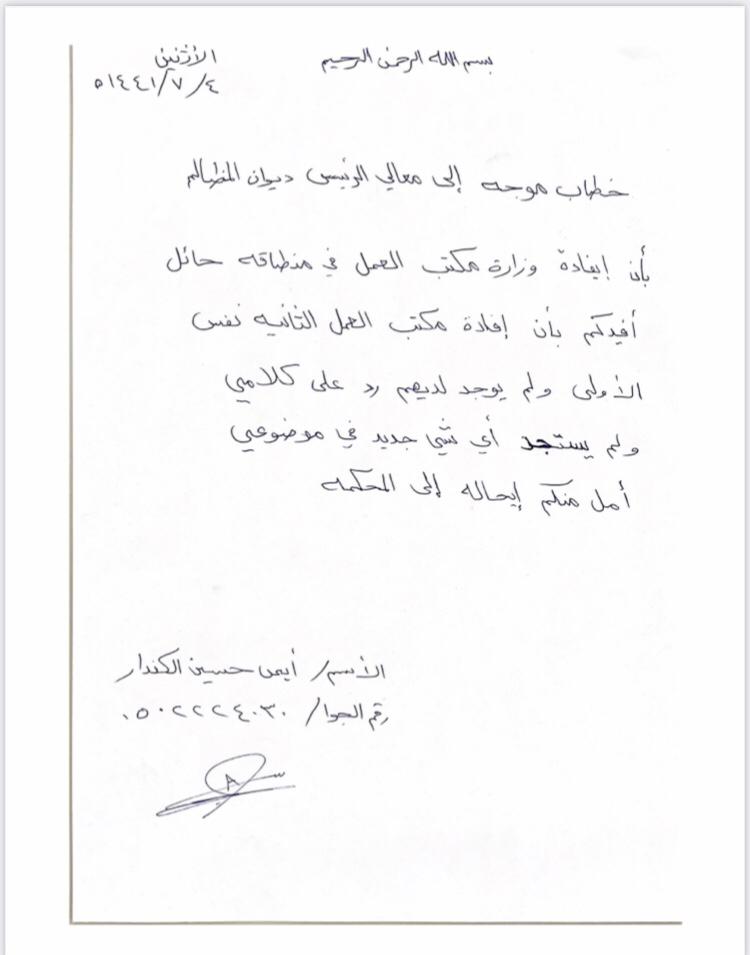 بسم الله الرحمن الرحيم
الأثنين
١٤٤١/٧/٤ه
خطاب موجه إلى معالي الرئيس ديوان المظالم
بأن إيفادة وزارة مكتب العمل في منطاقه حائل
أفيدكم بأن إفادة مكتب العمل الثانيه نفس
الأولى ولم يوجد لديهم رد على كلامي
ولم يستجد أي شي جديد في موضوعي
أمل منكم إيحاله إلى المحكمه
الأسم/ أيمن حسين الكندار
رقم الجوا/ ٠٥٠٢٢٢٤٠٣٠